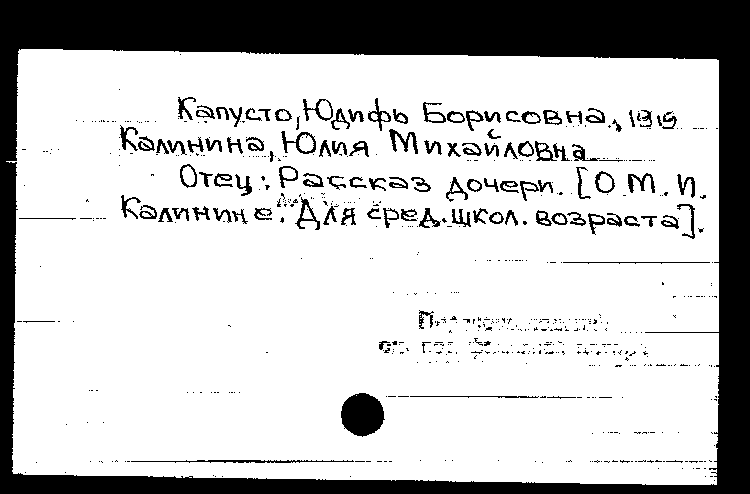 Капусто, Юдифь Борисовна, 1919
Калинина, Юлия Михайловна
Отец: Рассказ дочери. [О М. И.
Калинине. Для сред. школ. возраста].